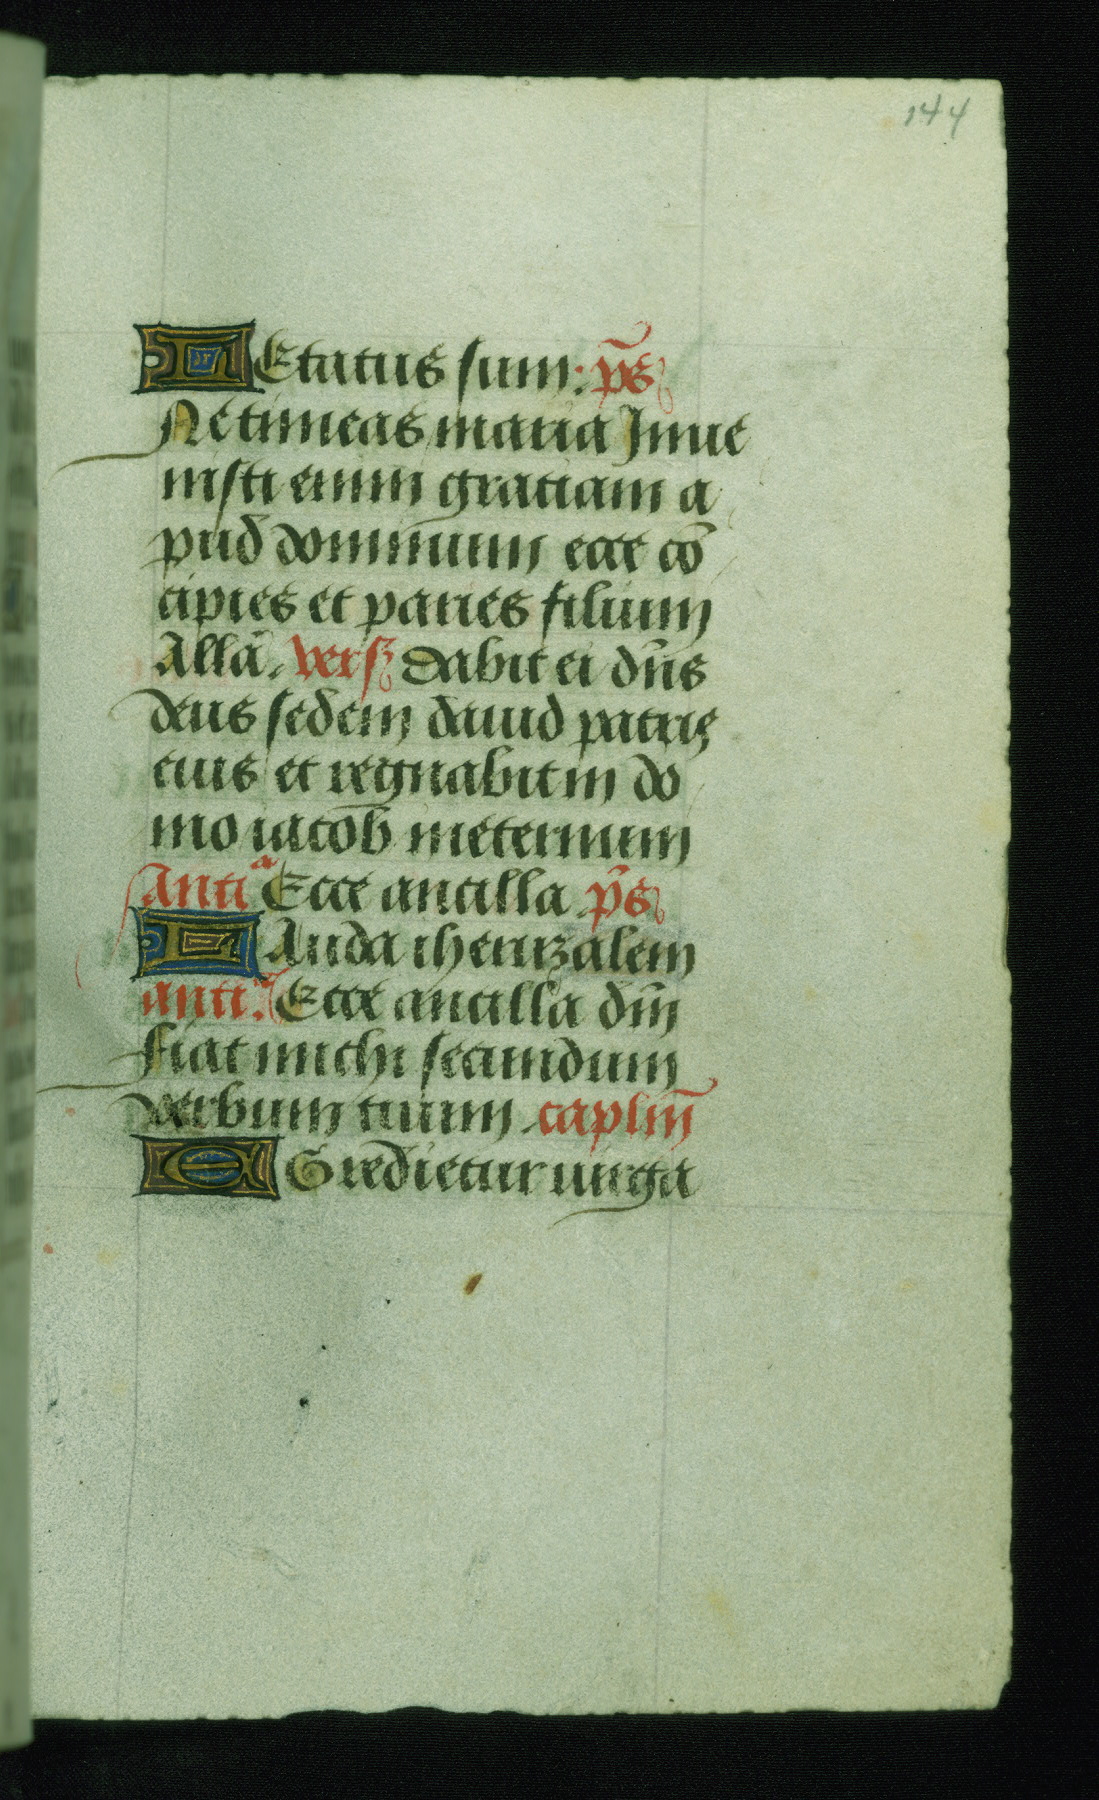 144
LEtatus sum: ps̄
Ne timeas maria Inue
nisti enim gratiam a
pud dominum ecce cō
cipies et paries filium
Allā. vers Dabit ei dn̄s
deus sedem dauid patris
eius et regnabit in do
mo iacob ineternum
Antia Ecce ancilla ps̄
LAuda iherusalem
anti.a Ecce ancilla dn̄i
fiat michi secundum
verbum tuum. caplm̄
EGredietur uirga